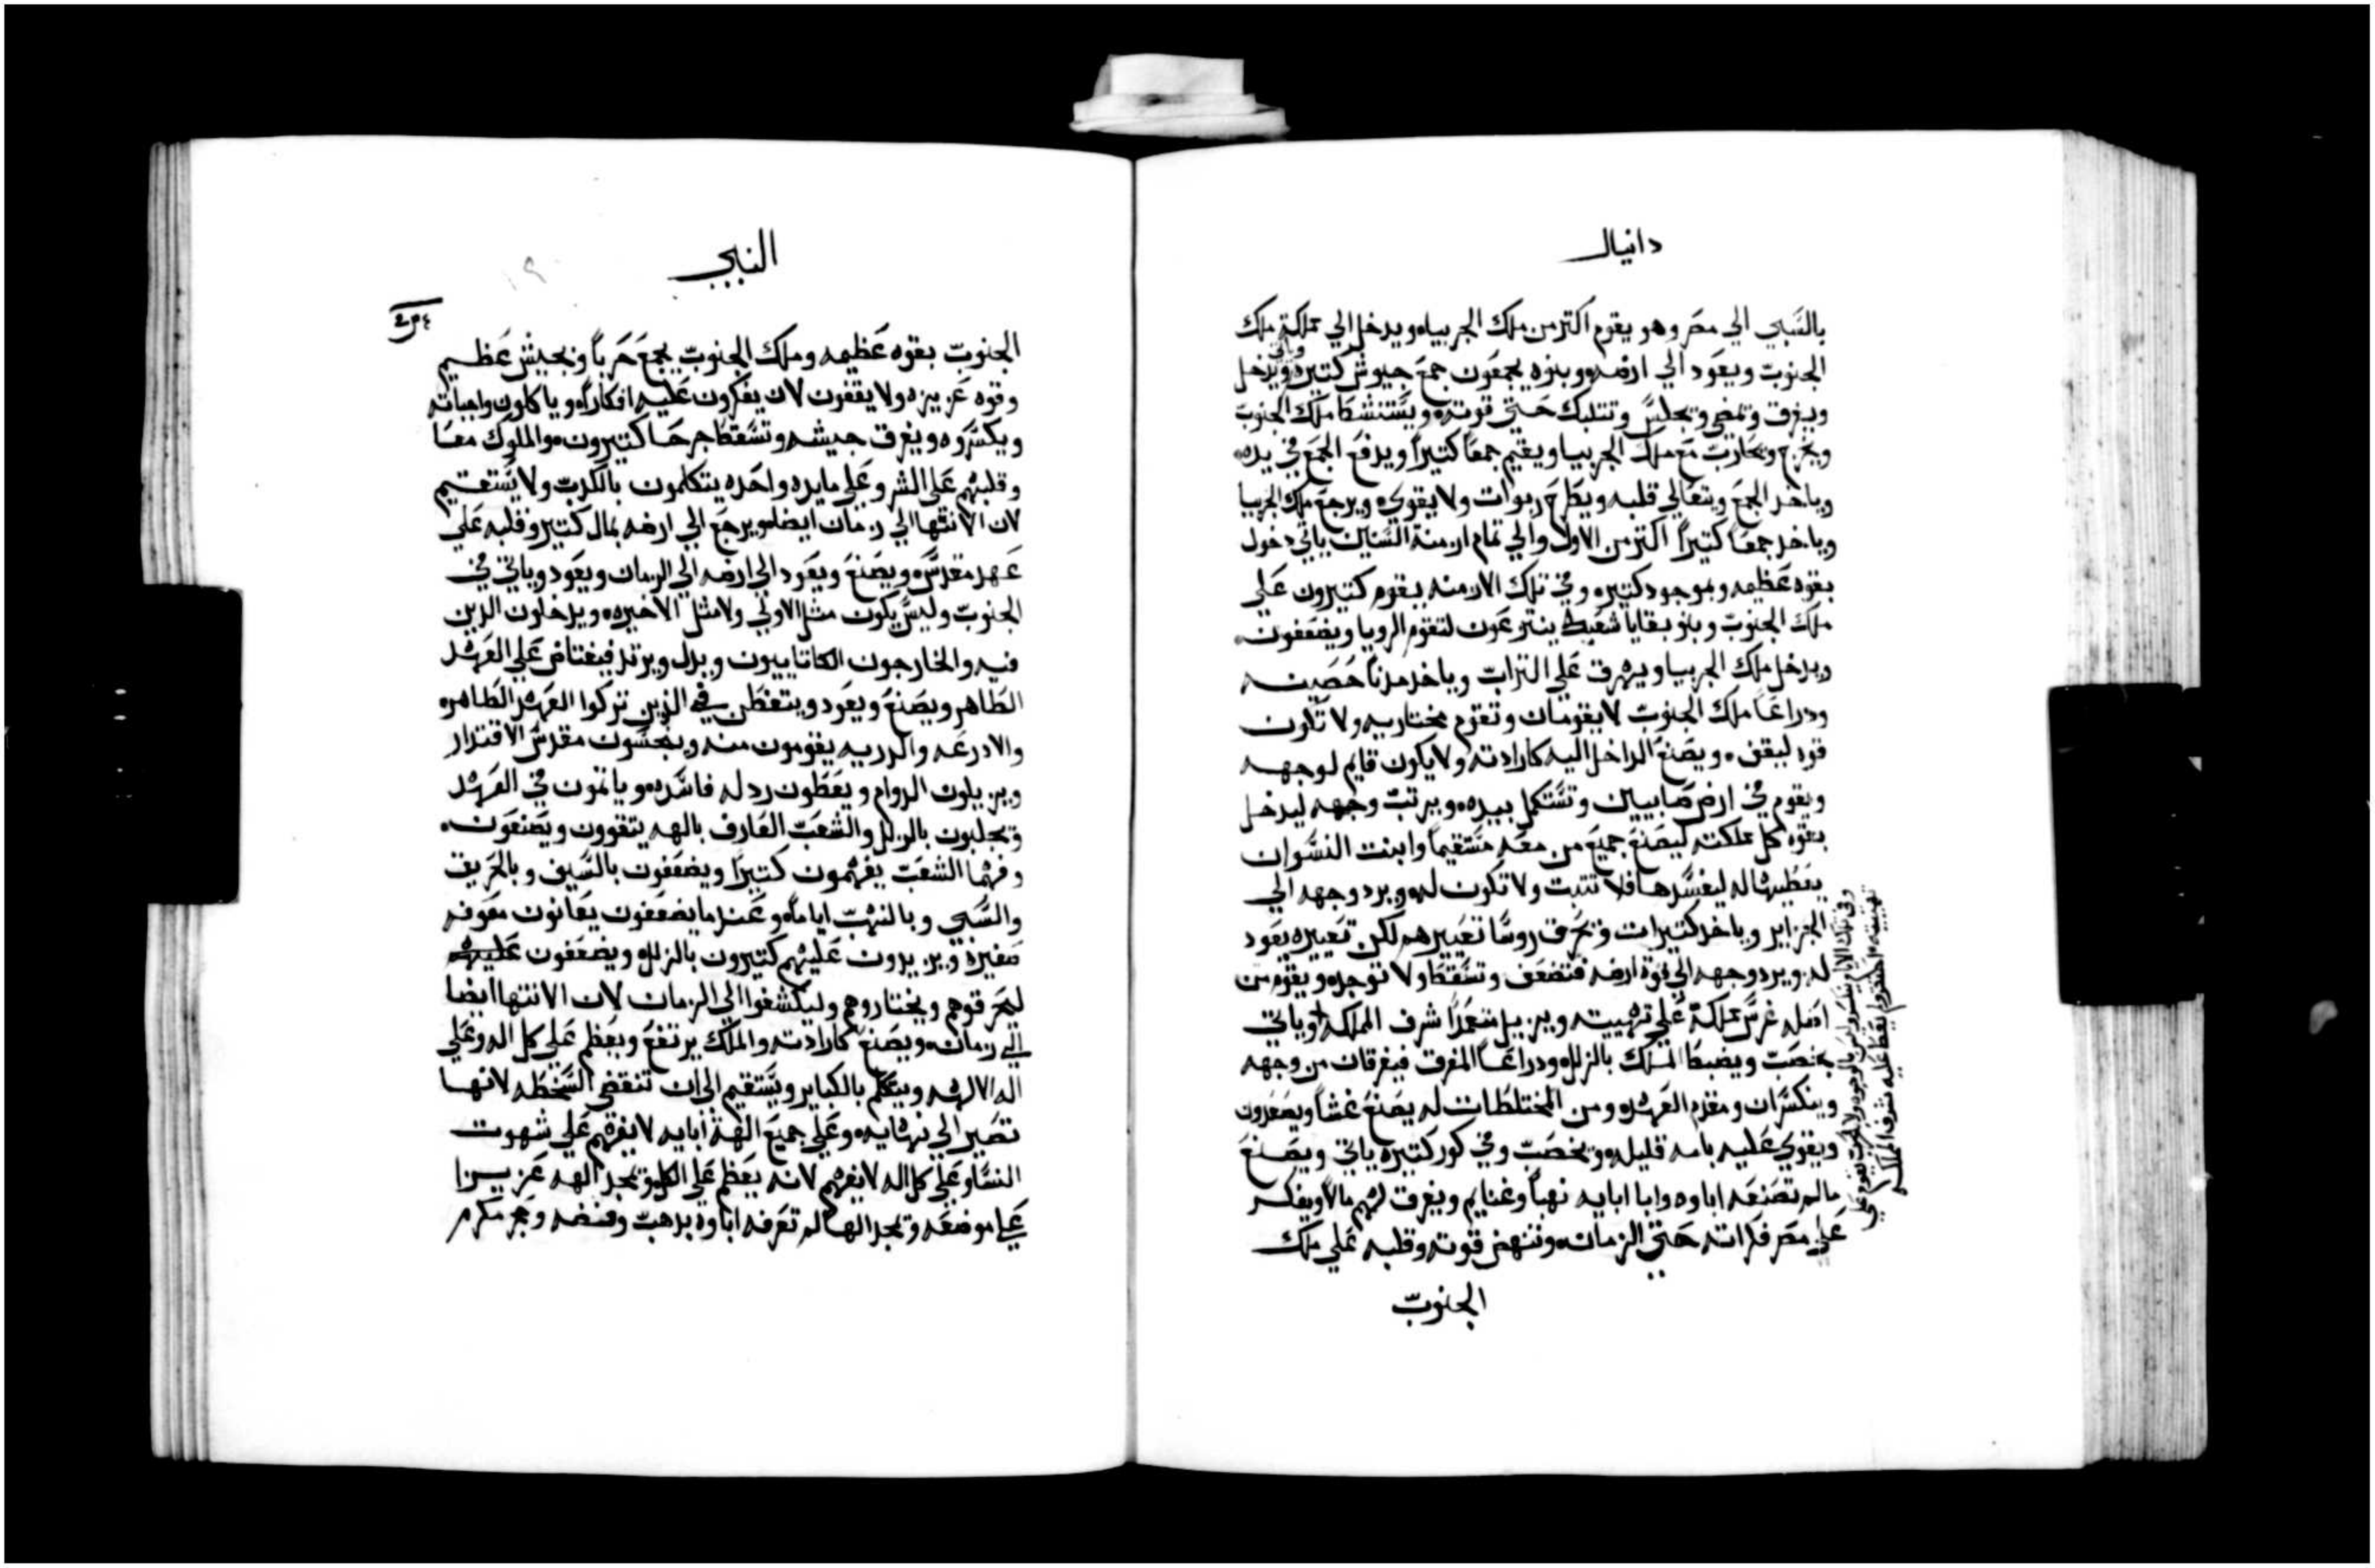 دانيال
بالسبي الي مصر وهو يقوم اكتر من ملك الجربيا ويدخل الي مملكة ملك
الجنوب ويعود الي ارضه وبنوه يجمعون جمع جيوش كتيره وياتي ويدخل
ويغرق ويمضي ويجلس وتتلبك حتي قوته ويستنشط ملك الجنوب
ويخرج ويحارب مع ملك الجربيا ويقيم جمعا كتيرا ويدفع الجمع في يده
وياخد الجمع ويتعالي قلبه ويطرح ربوات ولا يقوي ويرجع ملك الجربيا
وياخد جمعا كتيرا اكتر من الاول والي تمام ازمنة السنين ياتي دخول
بقوه عظيمه وبموجود كتيره وفي تلك الازمنه يقوم كتيرون علي
ملك الجنوب وبنو بقايا شعبك ينترعون لتقوم الرويا ويضعفون
ويدخل ملك الجربيا ويهرق علي التراب وياخد مدنا حصينه
ودراعا ملك الجنوب لا يقومان وتقوم مختاريه ولا تكون
قوه ليقف ويصنع الداخل اليه كارادته ولا يكون قايم لوجهه
ويقوم في ارض صابيين وتستكمل بيده ويرتب وجهه ليدخل
بقوه كل مملكته ليصنع جميع من معه مستقيما وابنت النسوان
يعطيها له ليفسدها فلا تتبت ولا تكون له ويرد وجهه الي
الجزاير وياخد كتيرات ويحرق روسا تعييرهم لكن تعييره يعود
له ويرد وجهه الي قوة ارضه فتضعف وتسقط ولا توجد ويقوم من
اصله غرس مملكة علي تهييته ويزيل شرف المملكه وياتي
بخصب ويضبط الملك بالزلل ودراعا المغرق فيغرقان من وجهه
وينكسران ومقدم العهد ومن المختلطات له يصنع غشا ويصعدون
ويقوي عليه بامه قليله وبخصب وفي كور كتيره ياتي ويصنع
ما لم تصنعه اباوه وابا ابايه نهبا وغنايم ويغرق لهم مالا ويفكر
علي مصر فكراته حتي الزمان وتنهض قوته وقلبه علي ملك
الجنوب
النبي
الجنوب بقوه عظيمه وملك الجنوب يجمع حربا وبجيش عظيم
وقوه عزيزه ولا يقفون لان يفكرون عليه افكارا وياكلون واجباته
ويكسروه ويغرق جيشه وتسقط جرحا كتيرون والملوك معا
وقلبهم علي الشر وعلي مايده واحده يتكلمون بالكدب ولا يستقيم
لان الانتها الي زمان ايضا ويرجع الي ارضه بمال كتير وقلبه علي
عهد مقدس ويصنع ويعود الي ارضه الي الزمان ويعود وياتي في
الجنوب وليس يكون متل الاولي ولا متل الاخيره ويدخلون الدين
فيه والخارجون الكاتاييون ويدل ويرتد فيغتاض علي العهد
الطاهر ويصنع ويعود ويتفطن في الدين تركوا العهد الطاهر
والادرعه والدريه يقومون منه وينجسون مقدس الاقتدار
ويزيلون الدوام ويعطون ردله فاسده وياتمون في العهد
ويجلبون بالزلل والشعب العارف بالهه يتقوون ويصنعون
وفهما الشعب يفهمون كتيرا ويضعفون بالسيف وبالحريق
والسبي وبالنهب اياما وعندما يضعفون يعانون معونه
صغيره ويزيدون عليهم كتيرون بالزلل ويضعفون عليهم
ليحرقوهم ويختاروهم وليكشفوا الي الزمان لان الانتها ايضا
الي زمان ويصنع كارادته والملك يرتفع ويعظم علي كل اله وعلي
اله الالهه ويتكلم بالكباير ويستقيم الي ان تنقضي السخطه لانها
تصير الي نهايه وعلي جميع الهة ابايه لا يفهم علي شهوت
النسا وعلي كل اله لا يفهم لانه يعظم علي الكل ويمجد الهه عزيزا
علي موضعه ويمجد الها لم تعرفه اباوه بدهب وفضه وحجر مكرم